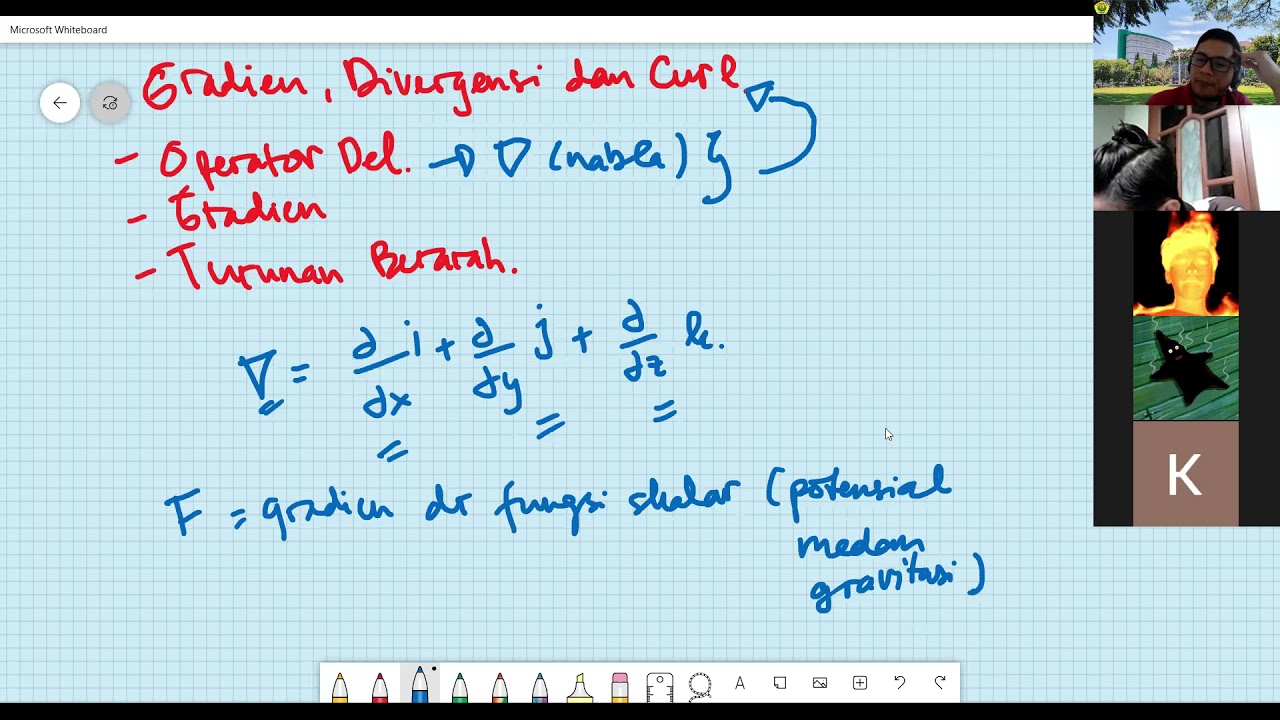 Microsoft Whiteboard
Gradien, Divergensi dan Curl
- Operator Del. → ∇ (nabla) }
∇
- Gradien
- Turunan Berarah.
∇ = ∂/∂x i + ∂/∂y j + ∂/∂z k.
F = gradien dr fungsi skalar (potensial
medan
gravitasi)
K
A